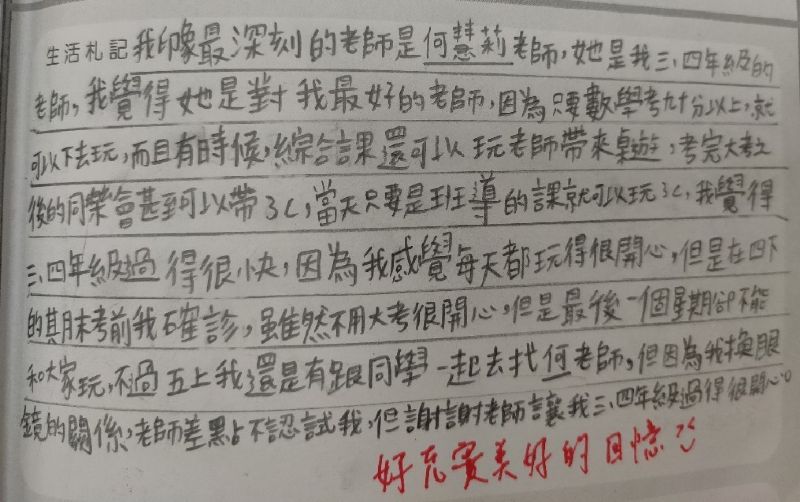 生活札記 我印像最深刻的老師是何慧莉老師，她是我三、四年級的
老師，我覺得她是對我最好的老師，因為只要數學考九十分以上，就
可以下去玩，而且有時候，綜合課還可以玩老師帶來桌遊，考完大考之
後的同樂會甚至可以帶3C，當天只要是班導的課就可以玩3C，我覺得
三、四年級過得很快，因為我感覺每天都玩得很開心，但是在四下
的其月末考前我確診，雖然不用大考很開心，但是最後一個星期卻不能
和大家玩，不過五上我還是有跟同學一起去找何老師，但因為我換眼
鏡的關係，老師差點不認試我，但謝謝老師讓我三、四年級過得很開心。
好充實美好的回憶